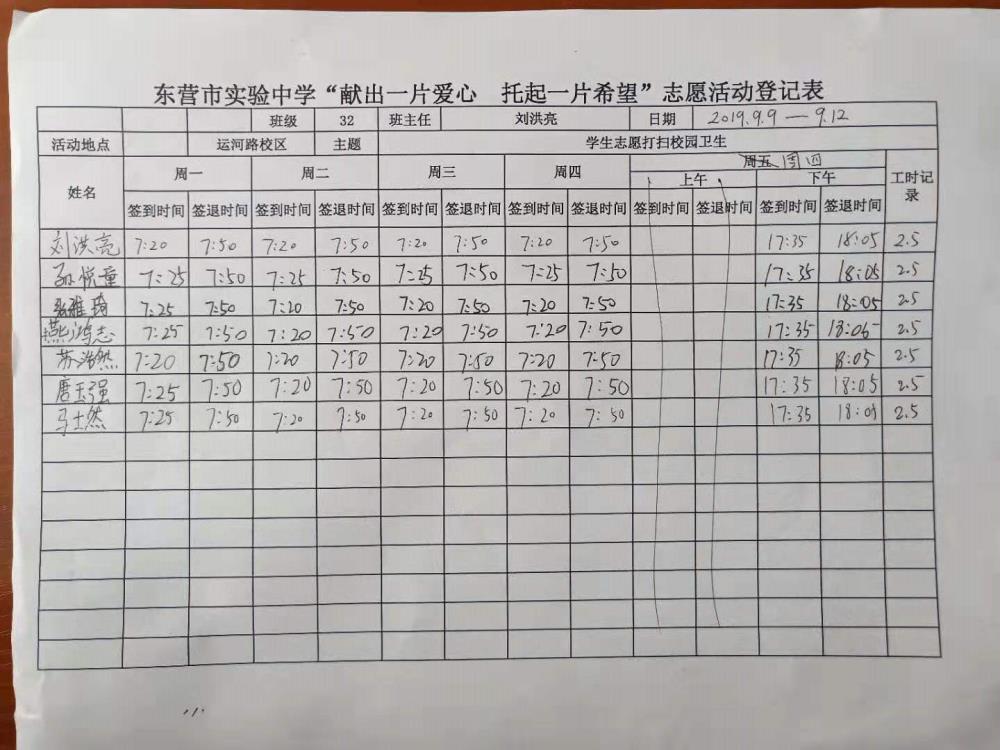 东营市实验中学“献出一片爱心 托起一片希望”志愿活动登记表
班级 32 班主任 刘洪亮 日期 2019.9.9 — 9.12
活动地点 运河路校区 主题 学生志愿打扫校园卫生
姓名 周一 周二 周三 周四 周五 周四 工时记录
上午 下午
签到时间 签退时间 签到时间 签退时间 签到时间 签退时间 签到时间 签退时间 签到时间 签退时间 签到时间 签退时间
刘洪亮 7:20 7:50 7:20 7:50 7:20 7:50 7:20 7:50 17:35 18:05 2.5
孙悦童 7:25 7:50 7:25 7:50 7:25 7:50 7:25 7:50 17:35 18:05 2.5
张雅琦 7:25 7:50 7:20 7:50 7:20 7:50 7:20 7:50 17:35 18:05 2.5
燕鸿志 7:25 7:50 7:20 7:50 7:20 7:50 7:20 7:50 17:35 18:05 2.5
苏浩然 7:20 7:50 7:20 7:50 7:20 7:50 7:20 7:50 17:35 18:05 2.5
唐玉强 7:25 7:50 7:20 7:50 7:20 7:50 7:20 7:50 17:35 18:05 2.5
马士然 7:25 7:50 7:20 7:50 7:20 7:50 7:20 7:50 17:35 18:05 2.5